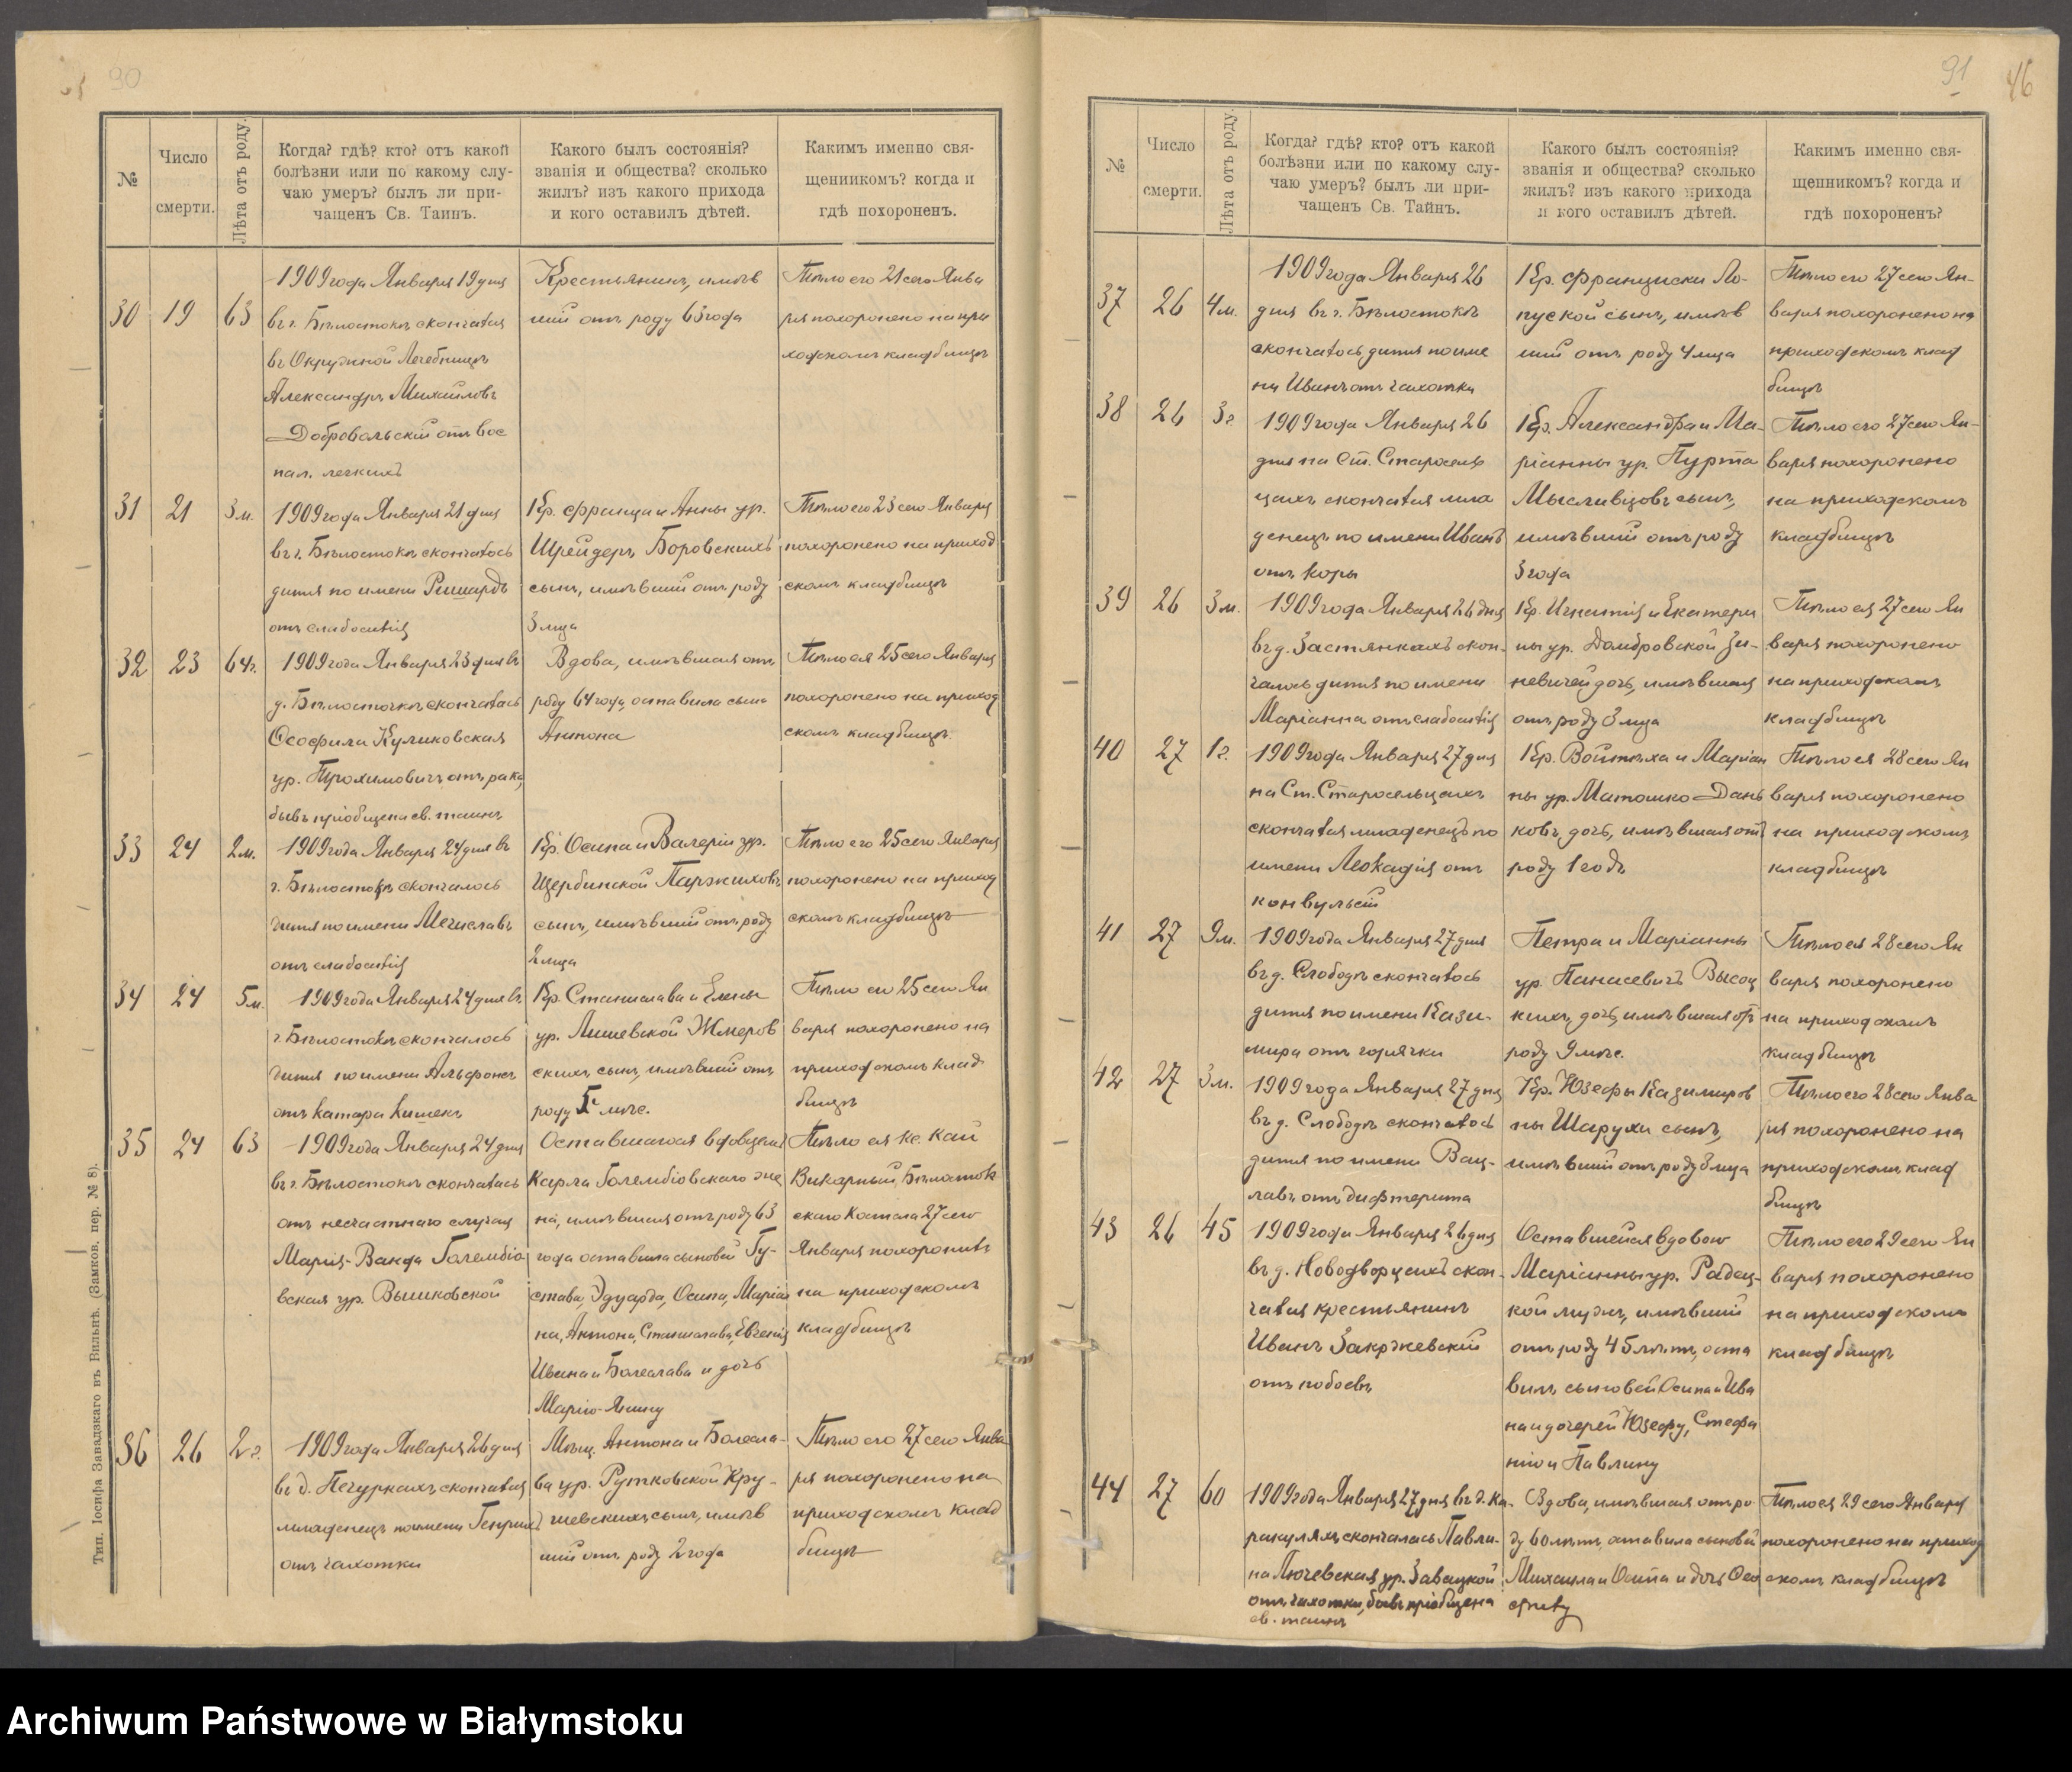 90
№
Число
смерти.
Лѣта отъ роду.
Когда? гдѣ? кто? отъ какой
болѣзни или по какому слу-
чаю умеръ? былъ ли при-
чащенъ Св. Таинъ.
Какого былъ состоянія?
званія и общества? сколько
жилъ? изъ какого прихода
и кого оставилъ дѣтей.
Какимъ именно свя-
щенникомъ? когда и
гдѣ похороненъ.
30
19
63
1909 года Января 19 дня
въ г. Бѣлостокѣ скончался
въ Окружной Лечебницѣ
Александръ Михайловъ
Добровольскій отъ вос
пал. легкихъ
Крестьянинъ, имѣв
шій отъ роду 63 года
Тѣло его 21 сего Янва
ря похоронено на при
ходскомъ кладбищѣ
31
21
3 м.
1909 года Января 21 дня
въ г. Бѣлостокѣ скончалось
дитя по имени Ришардъ
отъ слабости
Кр. Франца и Анны ур.
Шрейдеръ Боровскихъ
сынъ, имѣвшій отъ роду
3 м-ца
Тѣло его 23 сего Января
похоронено на приход
скомъ кладбищѣ
32
23
64 г.
1909 года Января 23 дня въ
д. Бѣлосточкѣ скончалась
Ѳеофила Куликовская
ур. Прохимовичъ отъ рака,
бывъ пріобщена св. таинъ
Вдова, имѣвшая отъ
роду 64 года, оставила сына
Антона
Тѣло ея 25 сего Января
похоронено на приход
скомъ кладбищѣ.
33
24
2 м.
1909 года Января 24 дня въ
г. Бѣлостокѣ скончалось
дитя по имени Мечиславъ
отъ слабости
Кр. Осипа и Валеріи ур.
Щербинской Паржиховъ
сынъ, имѣвшій отъ роду
2 м-ца
Тѣло его 25 сего Января
похоронено на приход
скомъ кладбищѣ
34
24
5 м.
1909 года Января 24 дня въ
г. Бѣлостокѣ скончалось
дитя по имени Альфонсъ
отъ катара кишекъ
Кр. Станислава и Елены
ур. Лишевской Жмеров
скихъ сынъ, имѣвшій отъ
роду 5 мѣс.
Тѣло его 25 сего Ян
варя похоронено на
приходскомъ клад
бищѣ
35
24
63
1909 года Января 24 дня
въ г. Бѣлостокѣ скончалась
отъ несчастнаго случая
Марія-Ванда Голембіо
вская ур. Вышковской
Оставшагося вдовцемъ
Карла Голембіовскаго же
на, имѣвшая отъ роду 63
года оставила сыновей Гу-
става, Эдуарда, Осипа, Маріа
на, Антона, Станислава, Евгенія
Ивана и Болеслава и дочь
Марію-Янину
Тѣло ея Кс. Каи
Викарный Бѣлосток
скаго Костела 27 сего
Января похоронилъ
на приходскомъ
кладбищѣ
36
26
2 г.
1909 года Января 26 дня
въ д. Печуркахъ скончался
младенецъ по имени Генрихъ
отъ чахотки
Мѣщ. Антона и Болесла-
ва ур. Рутковской Кру-
шевскихъ сынъ, имѣв
шій отъ роду 2 года
Тѣло его 27 сего Янва
ря похоронено на
приходскомъ клад
бищѣ
Тип. Іосифа Завадзкаго въ Вильнѣ. (Замков. пер. № 8).
91
46
№
Число
смерти.
Лѣта отъ роду
Когда? гдѣ? кто? отъ какой
болѣзни или по какому слу-
чаю умеръ? былъ ли при-
чащенъ Св. Тайнъ.
Какого былъ состоянія?
званія и общества? сколько
жилъ? изъ какого прихода
и кого оставилъ дѣтей.
Какимъ именно свя-
щенникомъ? когда и
гдѣ похороненъ?
37
26
4 м.
1909 года Января 26
дня въ г. Бѣлостокѣ
скончалось дитя по име
ни Иванъ отъ чахотки
Кр. Франциски Ло-
пуской сынъ, имѣв
шій отъ роду 4 м-ца
Тѣло его 27 сего Ян-
варя похоронено на
приходскомъ клад
бищѣ
38
26
3 г.
1909 года Января 26
дня на Ст. Старосель
цахъ скончался мла
денецъ по имени Иванъ
отъ кори
Кр. Александра и Ма-
ріанны ур. Пурта
Мысливцовъ сынъ,
имѣвшій отъ роду
3 года
Тѣло его 27 сего Ян-
варя похоронено
на приходскомъ
кладбищѣ
39
26
3 м.
1909 года Января 26 дня
въ д. Застянкахъ скон-
чалось дитя по имени
Маріанна отъ слабости
Кр. Игнатія и Екатери
ны ур. Домбровской Зи-
невичей дочь, имѣвшая
отъ роду 3 м-ца
Тѣло ея 27 сего Ян
варя похоронено
на приходскомъ
кладбищѣ
40
27
1 г.
1909 года Января 27 дня
на Ст. Старосельцахъ
скончался младенецъ по
имени Леокадія отъ
конвульсій
Кр. Войтѣха и Маріан
ны ур. Матошко Дань
ковъ, дочь, имѣвшая отъ
роду 1 годъ
Тѣло ея 28 сего Ян
варя похоронено
на приходскомъ
кладбищѣ
41
27
9 м.
1909 года Января 27 дня
въ д. Слободѣ скончалось
дитя по имени Кази-
мира отъ горячки
Петра и Маріанны
ур. Панасевичъ Высоц
кихъ, дочь, имѣвшая отъ
роду 9 мѣс.
Тѣло ея 28 сего Ян
варя похоронено
на приходскомъ
кладбищѣ
42
27
3 м.
1909 года Января 27 дня
въ д. Слободѣ скончалось
дитя по имени Вац-
лавъ отъ дифтерита
Кр. Юзефы Казимиров
ны Шарухи сынъ,
имѣвшій отъ роду 3 м-ца
Тѣло его 28 сего Янва
ря похоронено на
приходскомъ клад
бищѣ
43
26
45
1909 года Января 26 дня
въ д. Новодворцахъ скон-
чался крестьянинъ
Иванъ Закржевскій
отъ побоевъ
Оставшейся вдовою
Маріанны ур. Радец-
кой мужъ, имѣвшій
отъ роду 45 лѣтъ, оста
вилъ сыновей Осипа и Ива
на и дочерей Юзефу, Стефа
нію и Павлину
Тѣло его 29 сего Ян
варя похоронено
на приходскомъ
кладбищѣ
44
27
60
1909 года Января 27 дня въ д. Ка-
ракуляхъ скончалась Павли-
на Лючевская ур. Завацкой
отъ чахотки, бывъ пріобщена
св. таинъ
Вдова, имѣвшая отъ ро
ду 60 лѣтъ, оставила сыновей
Михаила и Осипа и дочь Ѳео
филу
Тѣло ея 29 сего Января
похоронено на приход
скомъ кладбищѣ
Archiwum Państwowe w Białymstoku